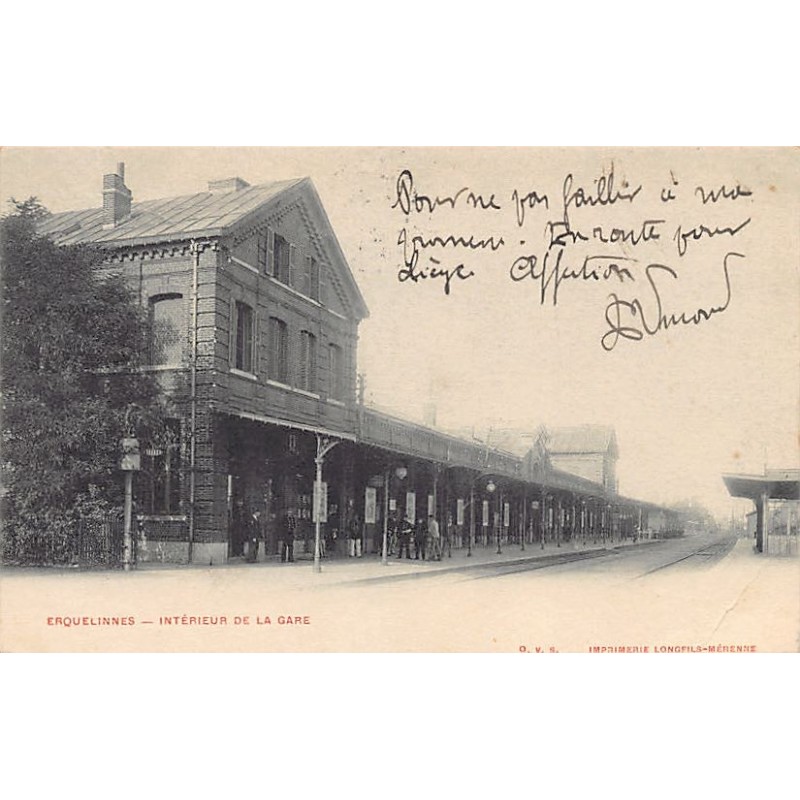 Pour ne pas faillir à ma
promesse. En route pour
Liège. Affection
ERQUELINNES — INTÉRIEUR DE LA GARE
D. V. S. IMPRIMERIE LONGFILS-MÉRENNE